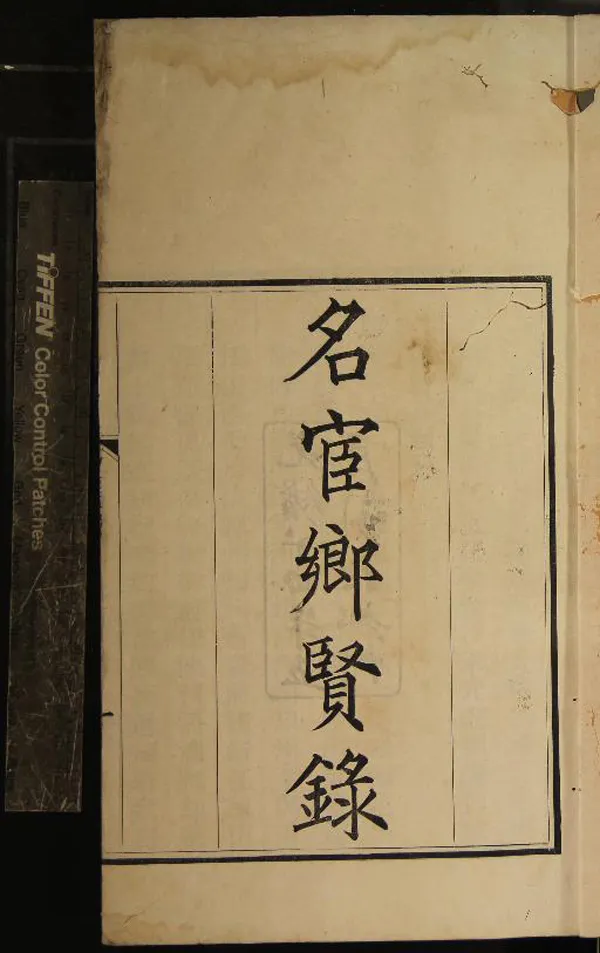 名宦鄉賢錄
TIFFEN Color Control Patches
Blue Cyan Green Yellow Red